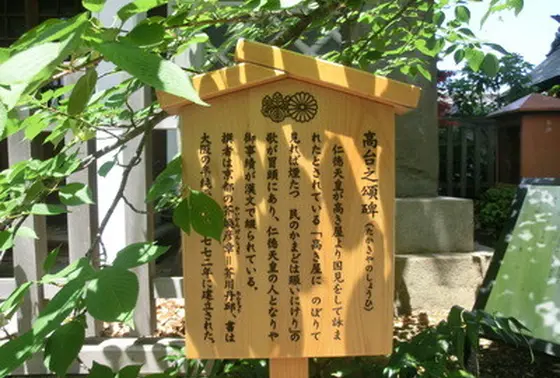 高台之頌碑（たかきやのしょうひ）
仁徳天皇が高き屋より国見をして詠ま
れたとされている「高き屋に のぼりて
見れば煙たつ 民のかまどは賑いにけり」の
歌が冒頭にあり、仁徳天皇の人となりや
御事蹟が漢文で綴られている。
撰者は京都の芥煥彦章＝芥川丹邱、書は
大阪の 七七二年に建立された。